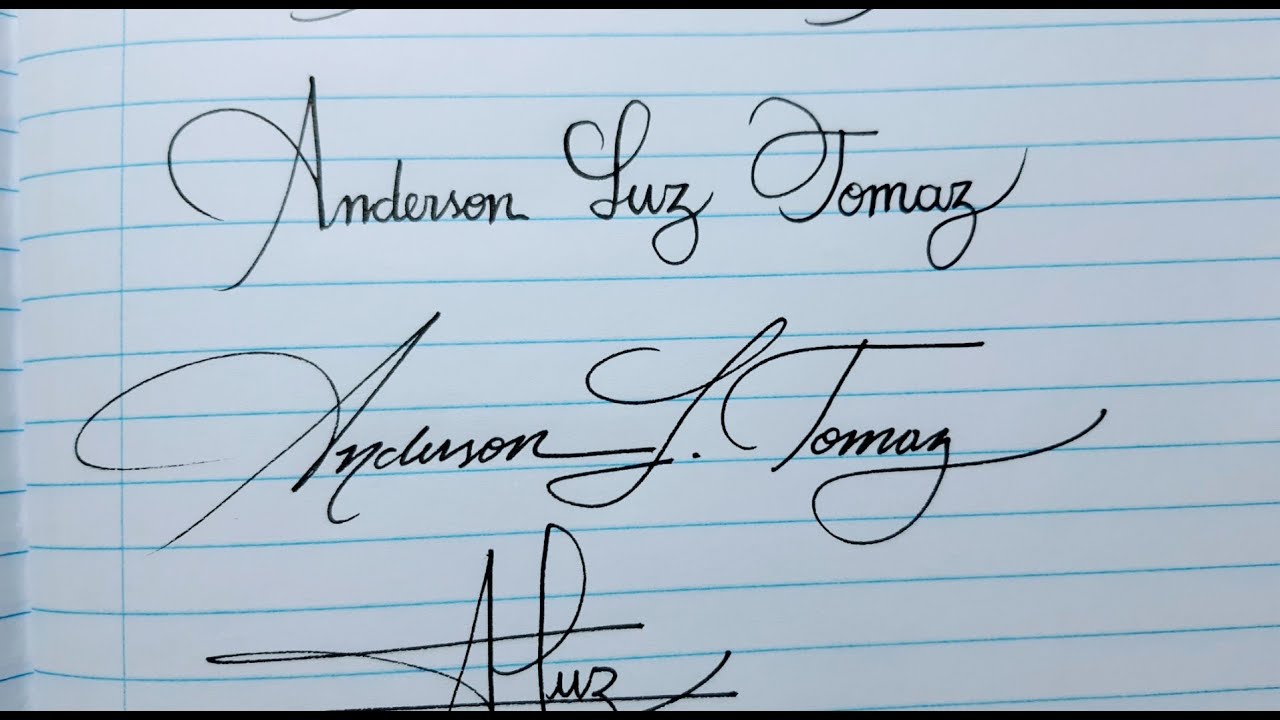 Anderson Luz Tomaz
Anderson L. Tomaz
ALuz